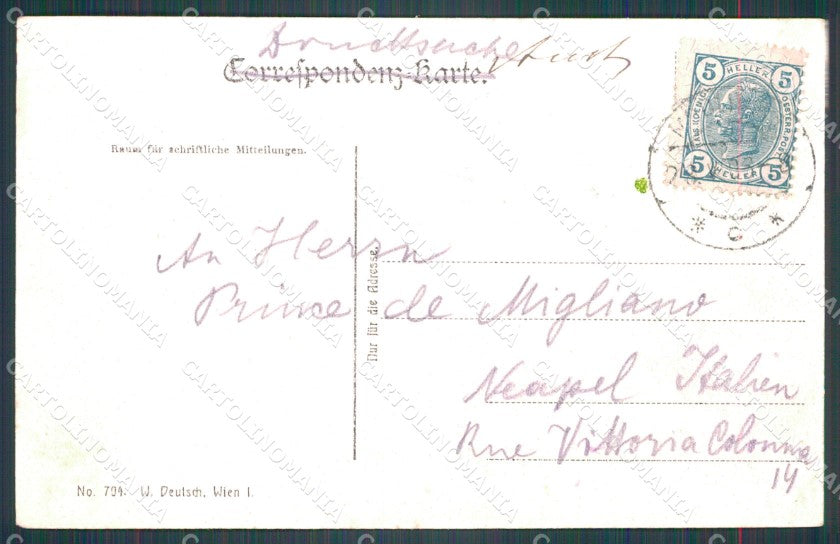 Drucksache
Correspondenz-Karte.
Raum für schriftliche Mitteilungen.
5 HELLER 5
5 HELLER 5
C
Nur für die Adresse.
An Herrn
Prince de Migliano
Neapel Italien
Rue Vittoria Colonna
14
No. 794. W. Deutsch, Wien I.
CARTOLINOMANIA